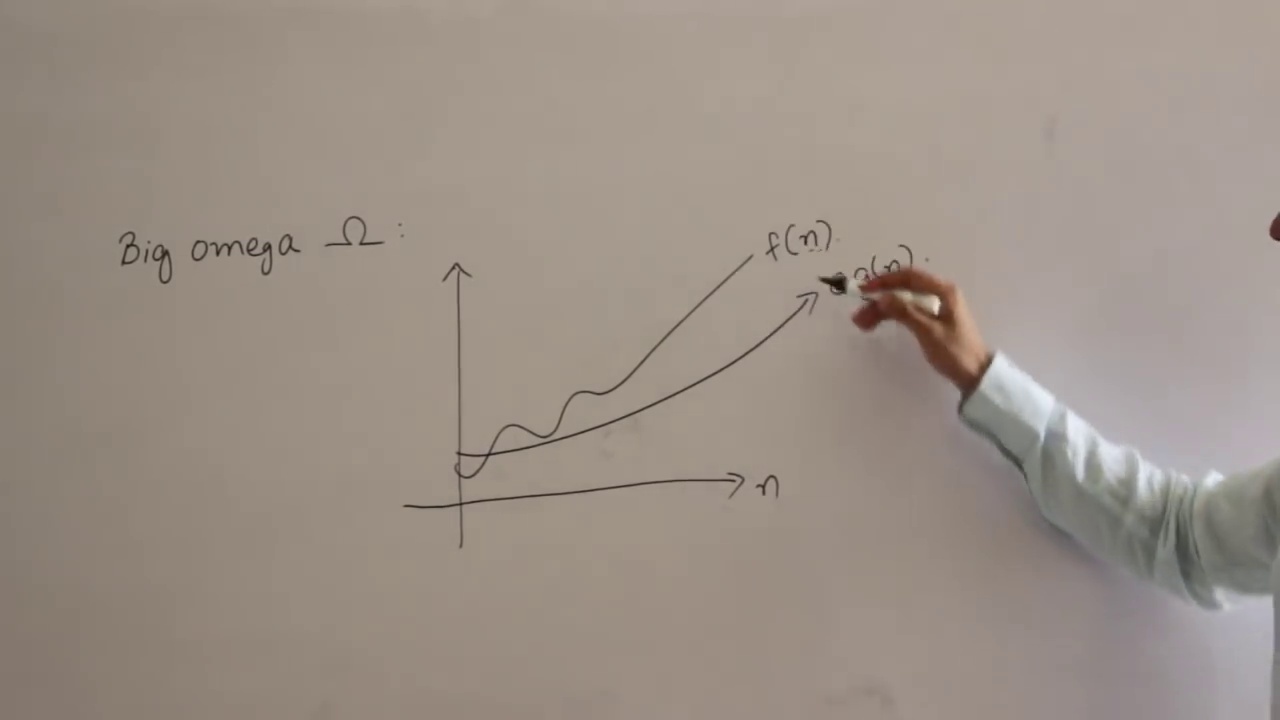 Big omega Ω :
f(n).
g(n).
n